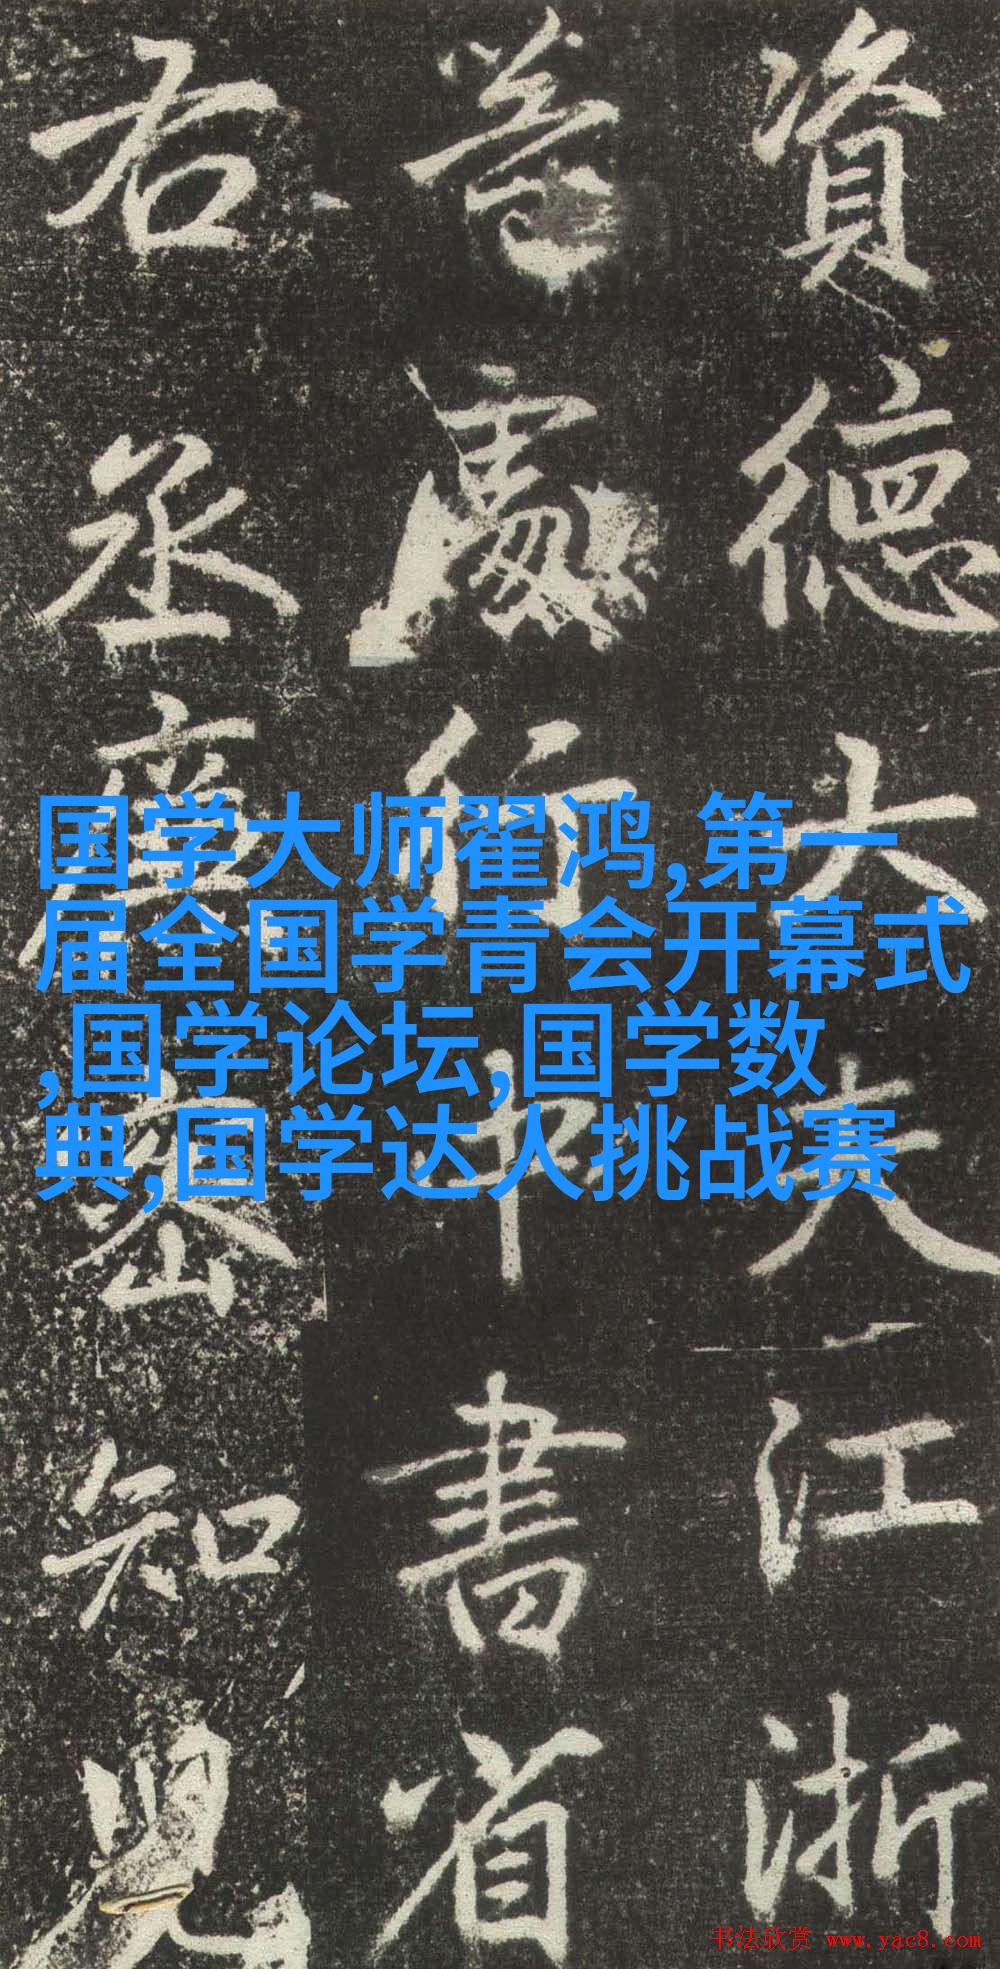 国学大师翟鸿,第一
届全国学青会开幕式
,国学论坛,国学数
典,国学达人挑战赛
資德大夫江浙
等處行中書省
右丞廉密知兒
书法欣赏 www.yac8.com